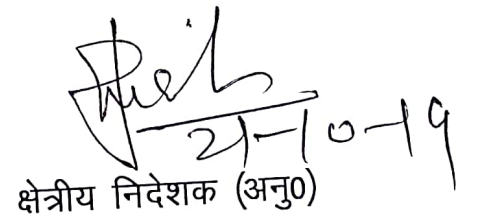 21-10-19
क्षेत्रीय निदेशक (अनु0)